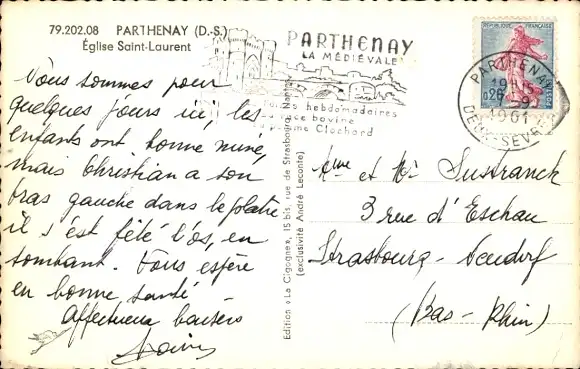 79.202.08 PARTHENAY (D.-S.)
Église Saint-Laurent
PARTHENAY
LA MÉDIÉVALE
hebdomadaires
race bovine
pomme Clochard
RÉPUBLIQUE FRANÇAISE
0,20
POSTES
PARTHENAY
1961
DEUX-SEVRES
Vous sommes pour
quelques jours ici, les
enfants ont bonne mine,
mais Christian a son
bras gauche dans le plâtre
il s'est fêlé l'os, en
tombant. Vous espère
en bonne santé
Affectueux baisers
Edition «La Cigogne», 15 bis, rue de Strasbourg, Nantes
(exclusivité André Leconte)
Mme et Mr Sustranck
3 rue d'Eschau
Strasbourg - Neudorf
(Bas-Rhin)